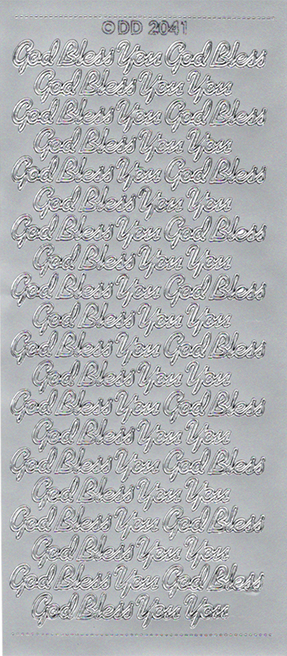 © DD 2041
God Bless You God Bless
God Bless You You
God Bless You God Bless
God Bless You You
God Bless You God Bless
God Bless You You
God Bless You God Bless
God Bless You You
God Bless You God Bless
God Bless You You
God Bless You God Bless
God Bless You You
God Bless You God Bless
God Bless You You
God Bless You God Bless
God Bless You You
God Bless You God Bless
God Bless You You
God Bless You God Bless
God Bless You You